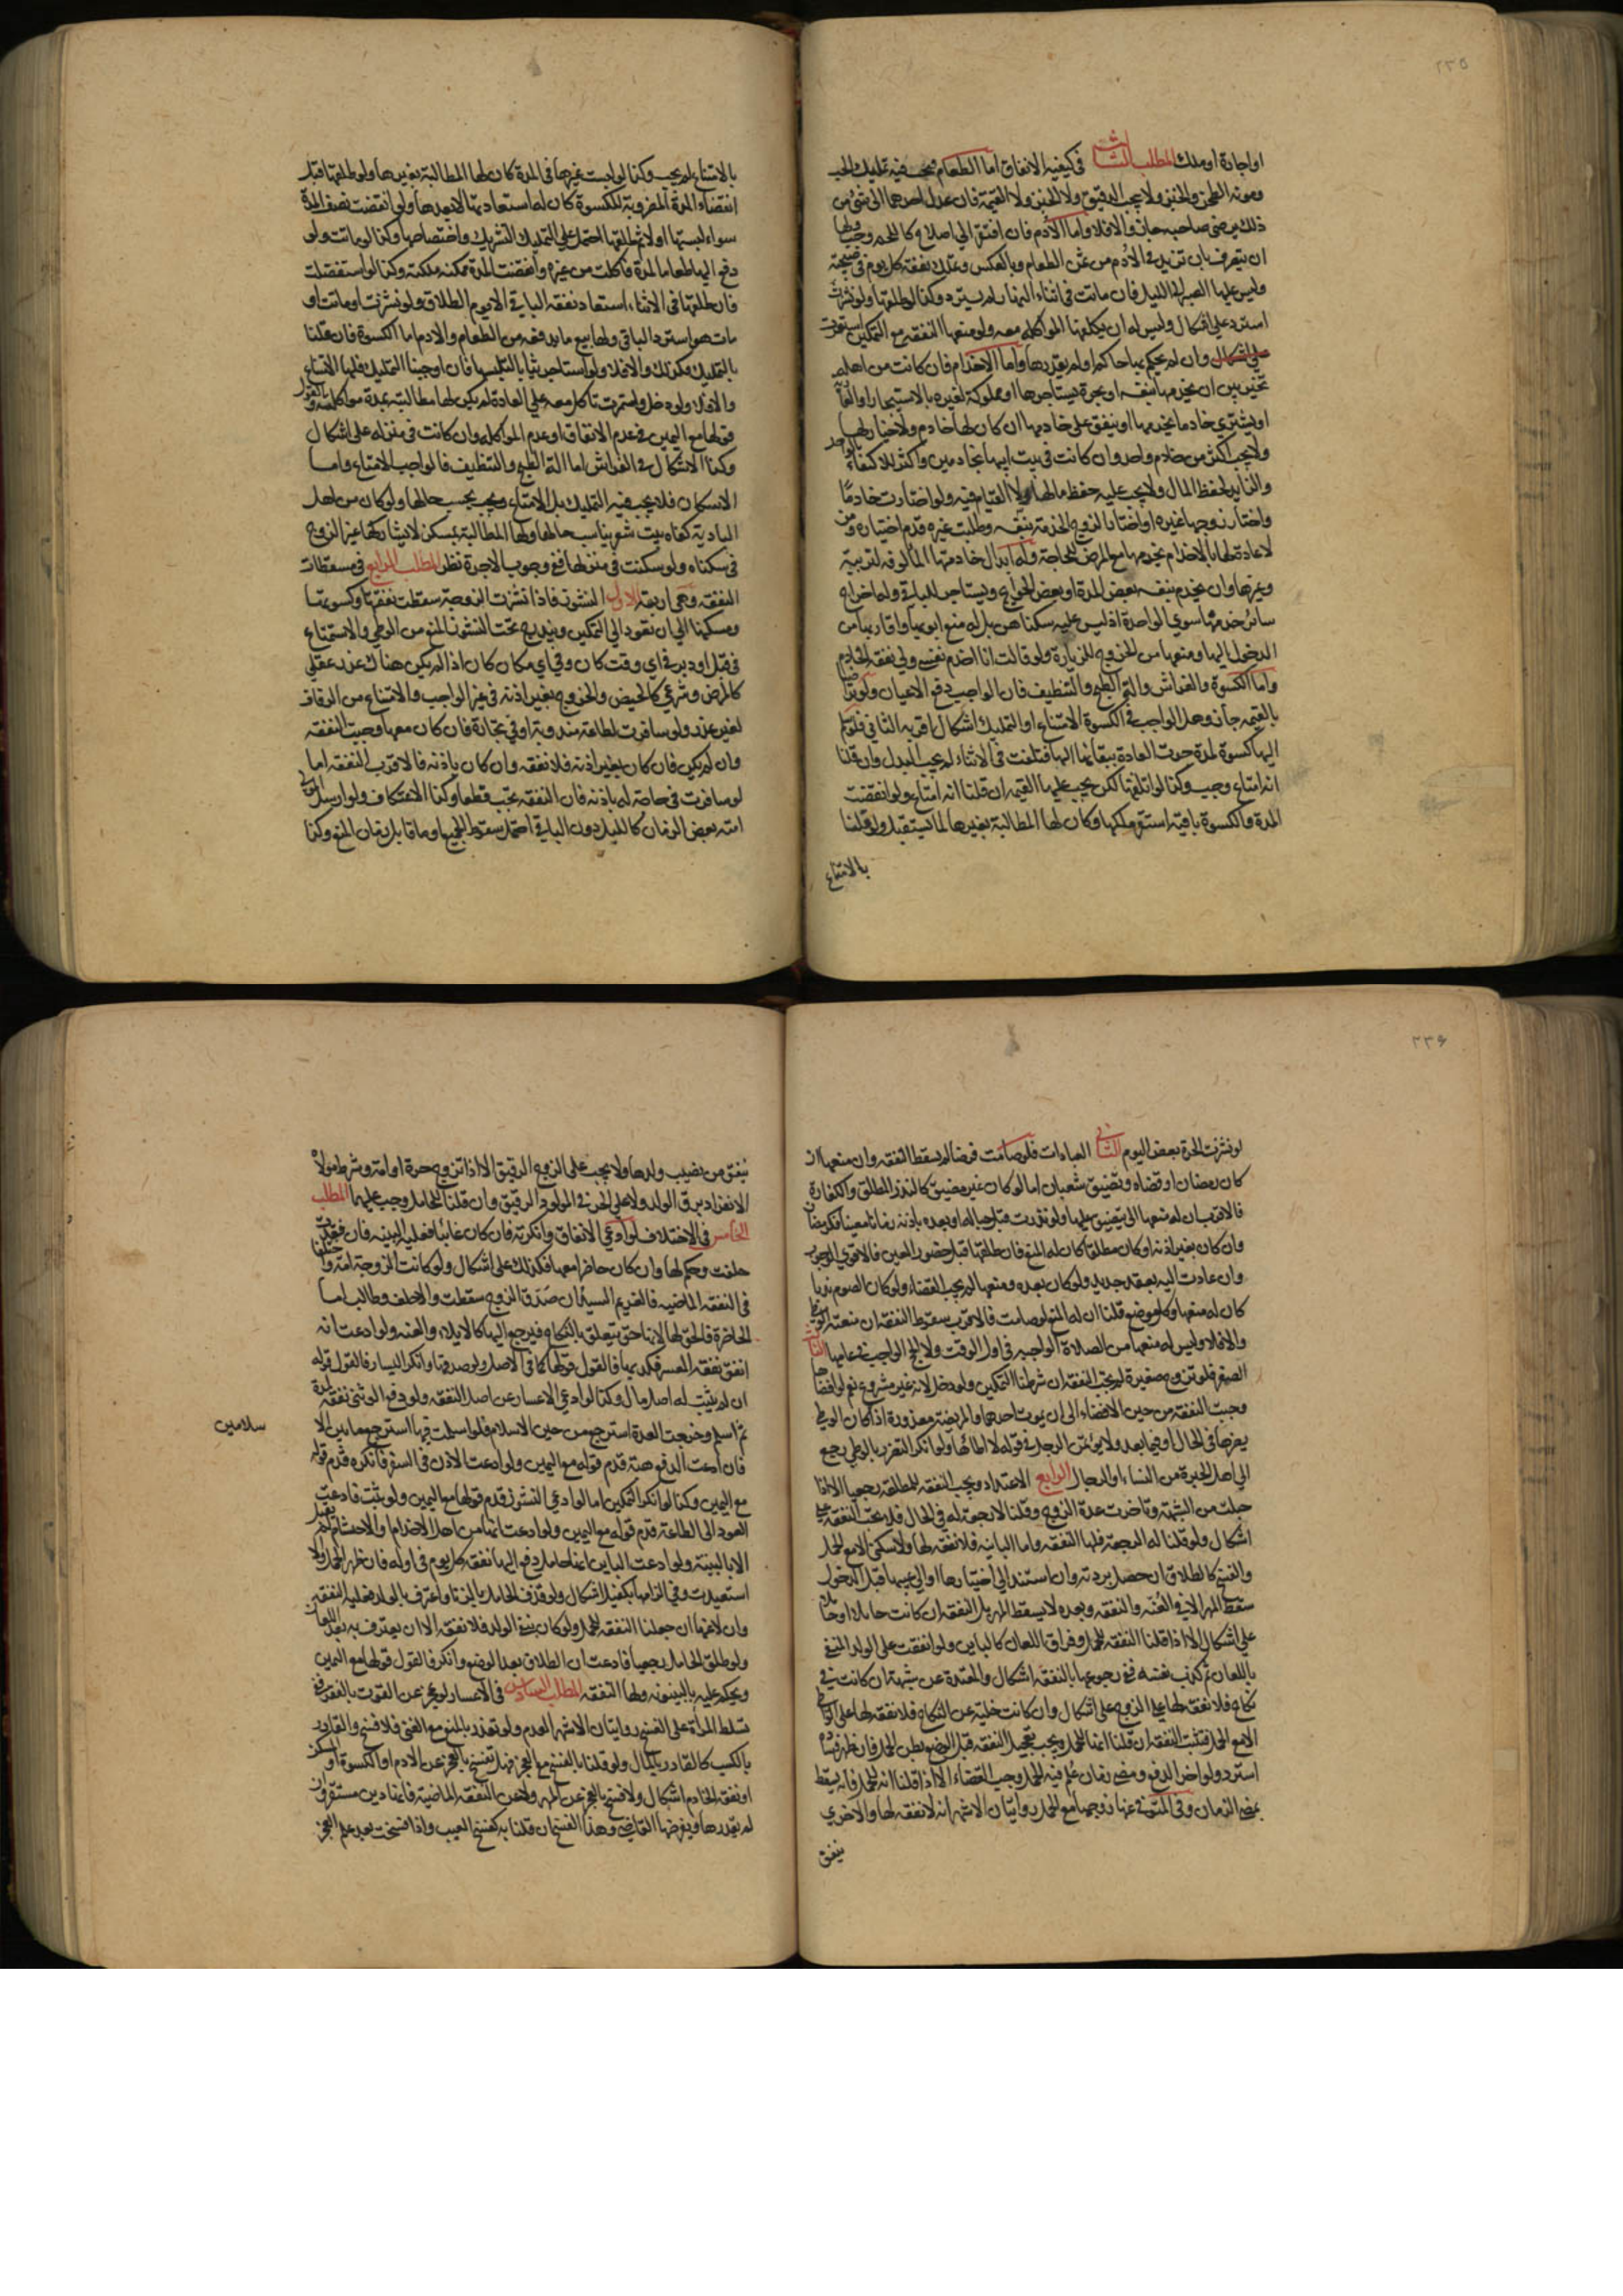 ٢٣٥
او اجارة او ملك المطلب الثالث في كيفية الانفاق اما الطعام فيجب فيه تمليك الحب
ومونة الطحن والخبز ولا يجب الدقيق ولا الخبز ولا القيمة فان عدل احدهما الى شيء من
ذلك برضى صاحبه جاز والا فلا واما الأدم فان افتقر الى اصلاح كاللحم وجب ولها
ان تتصرف بان تزيد في الأدم من ثمن الطعام وبالعكس وتملك نفقة كل يوم في صبيحته
وليس عليها الصبر الى الليل فان ماتت في اثناء النهار لم يسترد وكذا لو طلقها ولو نشزت
استرد على اشكال وليس له ان يكلفها المواكلة معه ولو منعها النفقة مع التمكين استقرت
على اشكال وان لم يحكم بها حاكم او لم يقدرها واما الاخدام فان كانت من اهله
تخير بين ان يخدمها بنفسه او بحرة يستاجرها او مملوكة لغيره بالاستيجار او
او يشتري خادما يخدمها او ينفق على خادمها ان كان لها خادم ولا خيار لها
ولا يجب اكثر من خادم واحد وان كانت في بيت ابيها بخادمين واكثر للاكتفاء بالواحد
والزايد لحفظ المال ولا يجب عليه حفظ مالها ولا القيام فيه ولو اختارت خادما
واختار زوجها غيره او اختار الزوج الخدمة بنفسه وطلبت غيره قدم اختياره ومن
لا عادة لها بالاخدام يخدمها مع المرض للحاجة وله ابدال خادمتها المألوفة لتربية
وغيرها وان يخدم بنفسه بعض المدة او بعض الحوايج ويستاجر للباقي وله اخراج
سائر خدمها سوى الواحدة اذ ليس عليه سكناهن بل له منع ابويها واقاربها من
الدخول اليها ومنعها من الخروج للزيارة ولو قالت انا اخدم نفسي ولي نفقة الخادم
واما الكسوة والفراش والة الطبخ والتنظيف فان الواجب دفع الاعيان ولو تراضيا
بالقيمة جاز وهل الواجب في الكسوة الامتاع او التمليك اشكال اقربه الثاني فلو سلم
اليها كسوة لمدة جرت العادة ببقائها اليها فتلفت في الاثناء لم يجب البدل وان قلنا
انه امتاع وجب وكذا لو اتلفتها لكن يجب عليها القيمة ان قلنا انه امتاع ولو انقضت
المدة والكسوة باقية استقر ملكها وكان لها المطالبة بغيرها لما يستقبل ولو قلنا
بالامتاع
بالامتناع لم يجب وكذا لو لبست غيرها في المدة كان لها المطالبة بغيرها ولو طلقها قبل
انقضاء المدة المضروبة للكسوة كان له استعادتها الا بعدها ولو انقضت نصف المدة
سواء لبستها او لا ثم طلقها احتمل على التمليك التشريك واختصاصها وكذا لو ماتت ولو
دفع اليها طعاما لمدة فاكلت من غيره وانقضت المدة ممكنة ملكته وكذا لو استفضلت
فان طلقها في الاثناء استعاد نفقة الباقي الا يوم الطلاق ولو نشزت او ماتت او
مات هو استرد الباقي ولها بيع ما يدفعه من الطعام والادم اما الكسوة فان قلنا
بالتمليك فكذلك والا فلا ولو استاجر ثيابا لتلبسها فان اوجبنا التمليك فلها الامتناع
والا فلا ولو دخل واستمرت تاكل معه على العادة لم يكن لها مطالبته بمدة مواكلته والقول
قولها مع اليمين في عدم الانفاق او عدم المواكلة وان كانت في منزله على اشكال
وكذا الاشكال في الفراش اما الة الطبخ والتنظيف فالواجب الامتاع واما
الاسكان فلا يجب فيه التمليك بل الامتاع ويجب بحسب حالها ولو كان من اهل
البادية كفاه بيت شعر يناسب حالها ولها المطالبة بمسكن لا يشاركها غير الزوج
في سكناه ولو سكنت في منزلها ففي وجوب الاجرة نظر المطلب الرابع في مسقطات
النفقة وهي اربعة الاول النشوز فاذا نشزت الزوجة سقطت نفقتها وكسوتها
ومسكنها الى ان تعود الى التمكين ويندرج تحت النشوز المنع من الوطي والاستمتاع
في قبل او دبر في اي وقت كان وفي اي مكان كان اذا لم يكن هناك عذر عقلي
كالمرض وشرعي كالحيض والخروج بغير اذنه في غير الواجب والامتناع من الزفاف
لغير عذر ولو سافرت لطاعة مندوبة او في تجارة فان كان معها وجبت النفقة
وان لم يكن فان كان بغير اذنه فلا نفقة وان كان باذنه فالاقرب النفقة اما
لو سافرت في حاجة له باذنه فان النفقة تجب قطعا وكذا الاعتكاف ولو ارسل المولى
امته بعض الزمان كالليل دون الباقي احتمل سقوط الجميع وما قابل زمان المنع وكذا
٢٣۶
لو نشزت الحرة بعض اليوم الثاني العبادات فلو صامت فرضا لم يسقط النفقة وان منعها ان
كان رمضان او قضاه وتضيق شعبان اما لو كان غير مضيق كالنذر المطلق والكفارة
فالاقرب ان له منعها الى تضيق عليها ولو نذرت قبل حباله او بعده باذنه زمانا معينا فكرمضان
وان كان بغير اذنه او كان مطلقا كان له المنع فان طلقها قبل حضور المعين فالاقوى الوجوب
وان عادت اليه بعقد جديد ولو كان بعده ومنعها لم يجب القضاء ولو كان الصوم ندبا
كان له منعها وكل موضع قلنا ان له المنع لو صامت فالاقرب سقوط النفقة ان منعته الوطي
والا فلا وليس له منعها من الصلاة الواجبة في اول الوقت ولا الحج الواجب في عامها الثالث
الصغر فلو تزوج صغيرة لم يجب النفقة ان شرطنا التمكين ولو دخل لانه غير مشروع نعم لو افضاها
وجبت النفقة من حين الافضاء الى ان يموت احدهما والمريضة معذورة اذا كان الوطي
يضر بها في الحال او فيما بعد ولا يؤتمن الرجل في قوله لا اطاها ولو انكر التضرر بالوطي رجع
الى اهل الخبرة من النساء او الرجال الرابع الاعتداد ويجب النفقة للمطلقة رجعيا الا اذا
حبلت من الشبهة وتاخرت عدة الزوج وقلنا لا رجعة له في الحال فلا يجب النفقة على
اشكال ولو قلنا له الرجعة فلها النفقة واما الباينة فلا نفقة لها ولا سكنى الا مع الحمل
والفسخ كالطلاق ان حصل بردته وان استند الى اختيارها او الى عيبها قبل الدخول
سقط المهر الا في العنة والنفقة وبعده لا يسقط المهر بل النفقة ان كانت حايلا او حاملا
على اشكال الا اذا قلنا النفقة للحمل وفراق اللعان كالباين ولو انفقت على الولد المنفي
باللعان ثم كذب نفسه ففي رجوعها بالنفقة اشكال والمعتدة عن شبهة ان كانت في
نكاح فلا نفقة لها على الزوج على اشكال وان كانت خلية عن النكاح فلا نفقة لها على الواطي
الا مع الحمل فتثبت النفقة ان قلنا انها للحمل ويجب تعجيل النفقة قبل الوضع بظن الحمل فان ظهر فساده
استرد ولو اخر الدفع ومضى زمان علم فيه الحمل وجب القضاء الا اذا قلنا انه للحمل فانه يسقط
بمضي الزمان وفي المتوفى عنها زوجها مع الحمل روايتان الاشهر انه لا نفقة لها والاخرى
ينفق
ينفق من نصيب ولدها ولا يجب على الزوج الرقيق الا اذا تزوج حرة او امة وشرط مولاه
الانفراد برق الولد ولا على الحر في المولود الرقيق وان قلنا للحامل وجب عليهما المطلب
الخامس في الاختلاف لو ادعى الانفاق وانكرته فان كان غائبا فعليه البينة فان فقدت
حلفت وحكم لها وان كان حاضرا معها فكذلك على اشكال ولو كانت الزوجة امة واختلفا
في النفقة الماضية فالغريم السيد فان صدق الزوج سقطت والا حلف وطالب اما
الحاضرة فالحق لها لانها حق يتعلق بالنكاح فيرجع اليها كالايلاء والعنة ولو ادعت انه
انفق نفقة المعسر فكذبها فالقول قولها كما في الاصل ولو صدقها وانكر اليسار فالقول قوله
ان لم يثبت له اصل مال وكذا لو ادعى الاعسار عن اصل النفقة ولو دفع الوثني نفقة لمدة
ثم اسلم وخرجت العدة استرجع من حين الاسلام فلو اسلمت فيها استرجع ما بين الا
سلامين
فان ادعت الدفع هبة قدم قوله مع اليمين ولو ادعت الاذن في السفر فانكره قدم قوله
مع اليمين وكذا لو انكر التمكين اما لو ادعى النشوز قدم قولها مع اليمين ولو ثبت فادعت
العود الى الطاعة قدم قوله مع اليمين ولو ادعت انها من اهل الاخدام والاحتشام لم يقبل
الا بالبينة ولو ادعت الباين انها حامل دفع اليها نفقة كل يوم في اوله فان ظهر الحمل والا
استعيدت وفي الزامها بكفيل اشكال ولو قذف الحامل بالزنا واعترف بالولد فعليه النفقة
وان لاعنها ان جعلنا النفقة للحمل ولو كان بنفي الولد فلا نفقة الا ان يعترف به بعد اللعان
ولو طلق الحامل رجعيا فادعت ان الطلاق بعد الوضع وانكر فالقول قولها مع اليمين
ويحكم عليه بالبينونة ولها النفقة المطلب السادس في الاعسار لو عجز عن القوت بالفقر ففي
تسلط المراة على الفسخ روايتان الاشهر العدم ولو تعذر بالمنع مع الغنى فلا فسخ والقادر
بالكسب كالقادر بالمال ولو قلنا بالفسخ مع العجز فهل تفسخ بالعجز عن الادم او الكسوة او المسكن
او نفقة الخادم اشكال ولا فسخ بالعجز عن المهر ولا عن النفقة الماضية فانها دين مستقر وان
لم يقدرها ويفرضها القاضي وهذا الفسخ ان قلنا به كفسخ العيب واذا فسخت بعد علم العجز